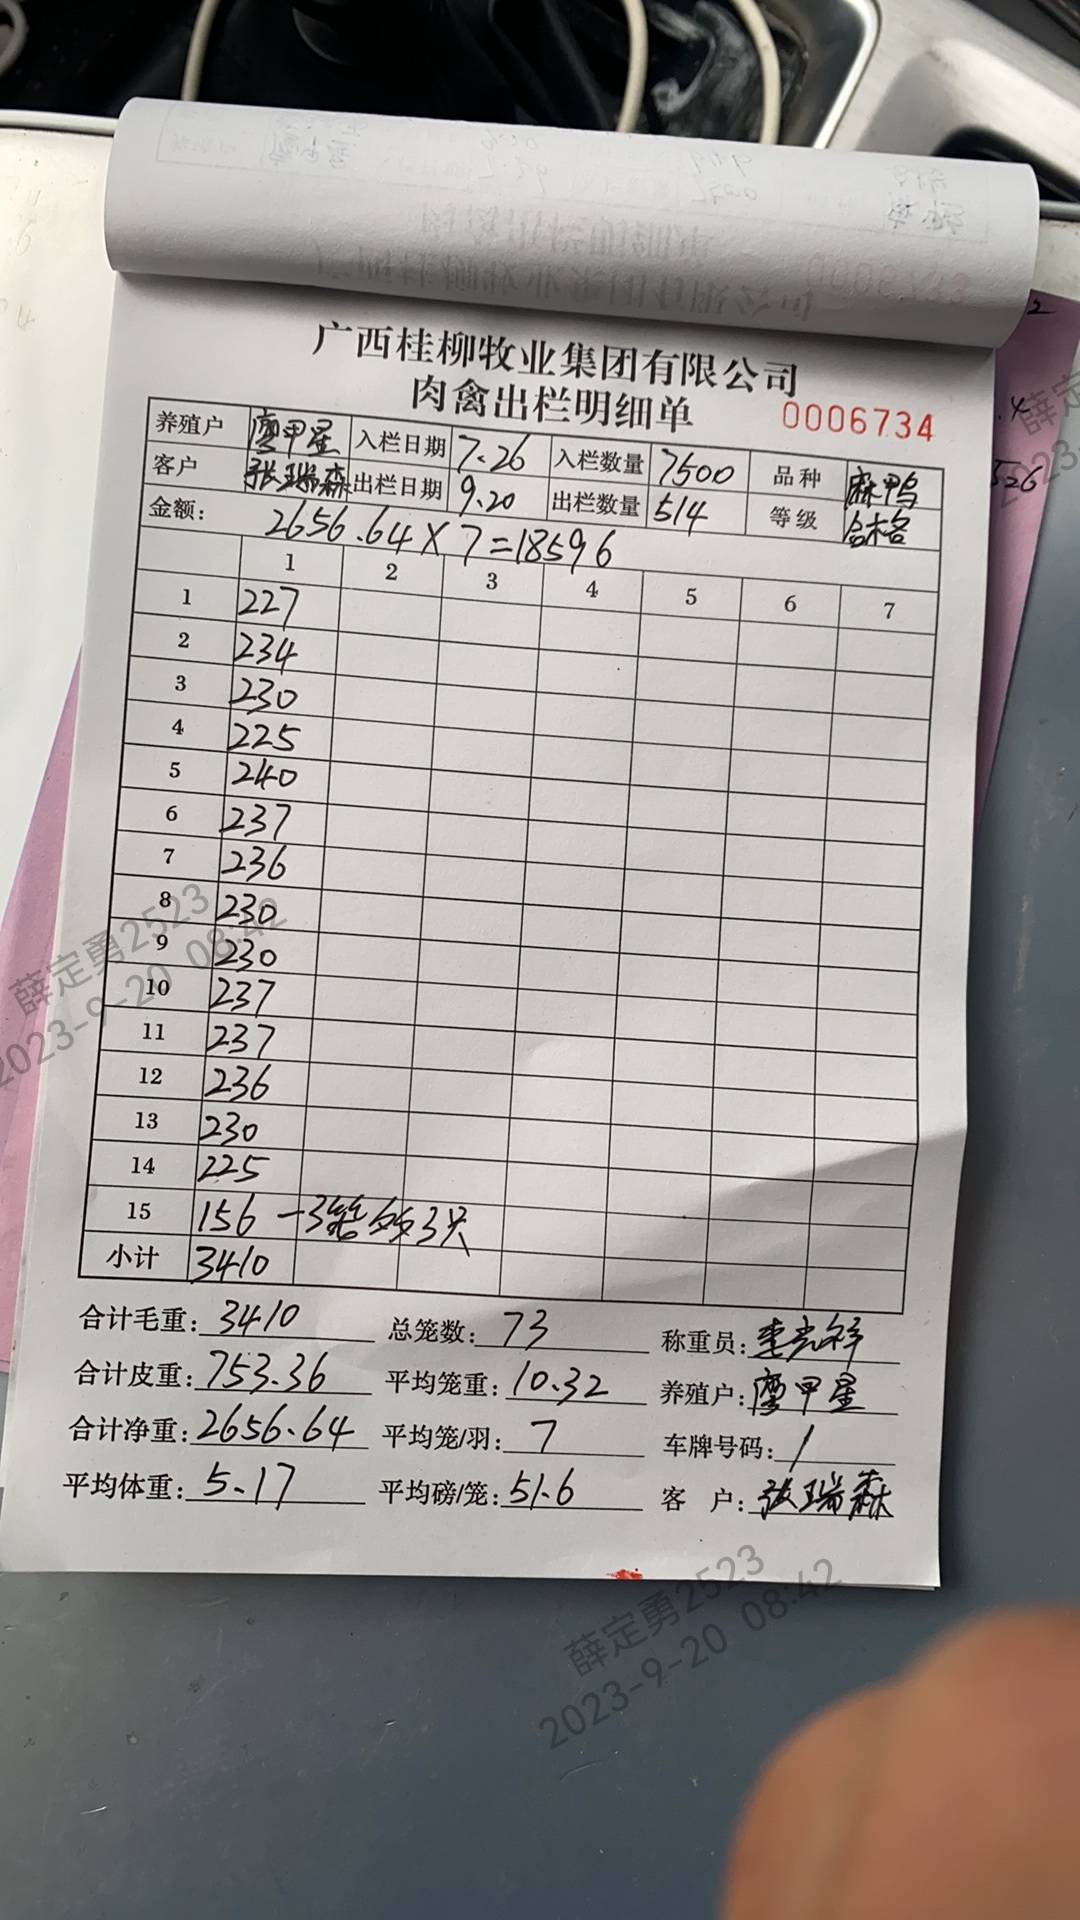 广西桂柳牧业集团有限公司
肉禽出栏明细单 0006734
养殖户 廖甲星 入栏日期 7.26 入栏数量 7500 品种 麻鸭
客户 张瑞森 出栏日期 9.20 出栏数量 514 等级 合格
金额: 2656.64×7=18596
1 2 3 4 5 6 7
1 227
2 234
3 230
4 225
5 240
6 237
7 236
8 230
9 230
10 237
11 237
12 236
13 230
14 225
15 156 -3笼 3只
小计 3410
合计毛重: 3410 总笼数: 73 称重员: 李光祥
合计皮重: 753.36 平均笼重: 10.32 养殖户: 廖甲星
合计净重: 2656.64 平均笼/羽: 7 车牌号码: /
平均体重: 5.17 平均磅/笼: 51.6 客户: 张瑞森
薛定勇2523
2023-9-20 08:42
薛定勇2523
2023-9-20 08:42